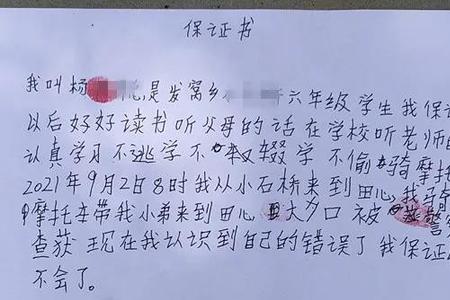 保证书
我叫杨 是发窝乡 六年级学生我保
以后好好读书听父母的话在学校听老师的
认真学习不逃学不 辍学不偷骑摩托
2021年9月2日8时我从小石桥来到田心我
摩托车带我小弟来到田心 大夕口被 警
查获 现在我认识到自己的错误了我保证
不会了。